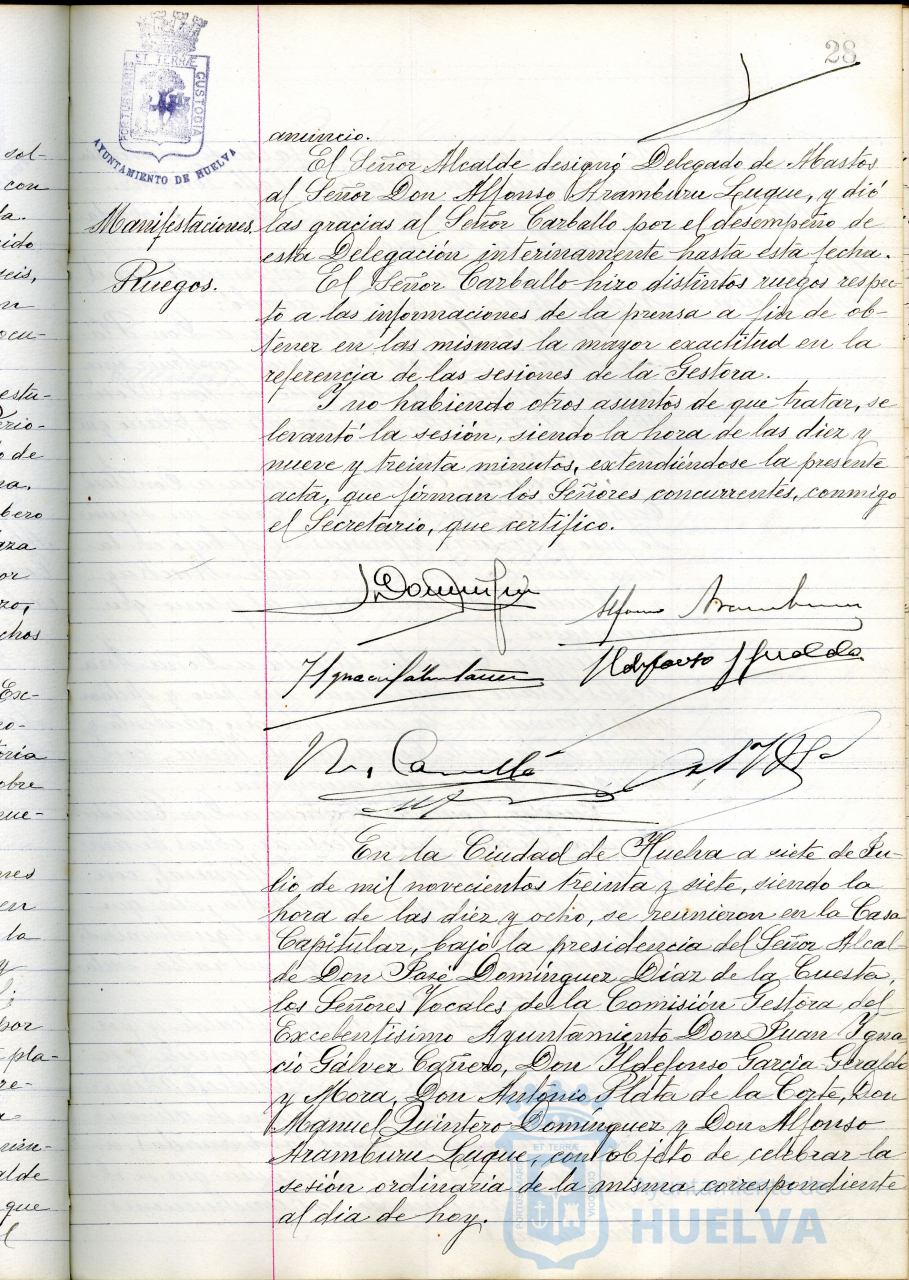 28
PORTUS MARIS ET TERRÆ CUSTODIA
AYUNTAMIENTO DE HUELVA
anuncio.
El Señor Alcalde designó Delegado de Abastos
al Señor Don Alfonso Aramburu Luque, y dió
Manifestaciones.
las gracias al Señor Carballo por el desempeño de
esta Delegación interinamente hasta esta fecha.
Ruegos.
El Señor Carballo hizo distintos ruegos respec-
to a las informaciones de la prensa a fin de ob-
tener en las mismas la mayor exactitud en la
referencia de las sesiones de la Gestora.
Y no habiendo otros asuntos de que tratar, se
levantó la sesión, siendo la hora de las diez y
nueve y treinta minutos, extendiéndose la presente
acta, que firman los Señores concurrentes, conmigo
el Secretario, que certifico.
Alfonso Aramburu
En la Ciudad de Huelva a siete de Ju-
lio de mil novecientos treinta y siete, siendo la
hora de las diez y ocho, se reunieron en la Casa
Capitular, bajo la presidencia del Señor Alcal-
de Don José Domínguez Díaz de la Cuesta,
los Señores Vocales de la Comisión Gestora del
Excelentísimo Ayuntamiento Don Juan Ygna
cio Gálvez Cañero, Don Yldefonso García Geraldo
y Mora, Don Antonio Plata de la Corte, Don
Manuel Quintero Domínguez y Don Alfonso
Aramburu Luque, con objeto de celebrar la
sesión ordinaria de la misma correspondiente
al dia de hoy.
Ayuntamiento de
HUELVA